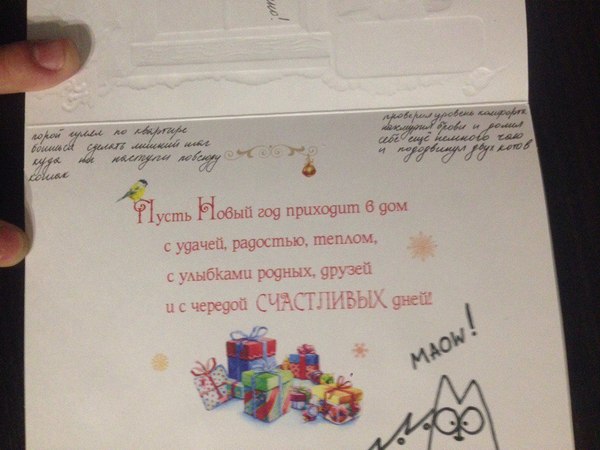 порой гуляя по квартире
боишься сделать лишний шаг
куда ни наступи повсюду
кошак
проверил уровень комфорта
нахмурил брови и долил
себе ещё немного чаю
и пододвинул двух котов
Пусть Новый год приходит в дом
с удачей, радостью, теплом,
с улыбками родных, друзей
и с чередой СЧАСТЛИВЫХ дней!
MAOW!